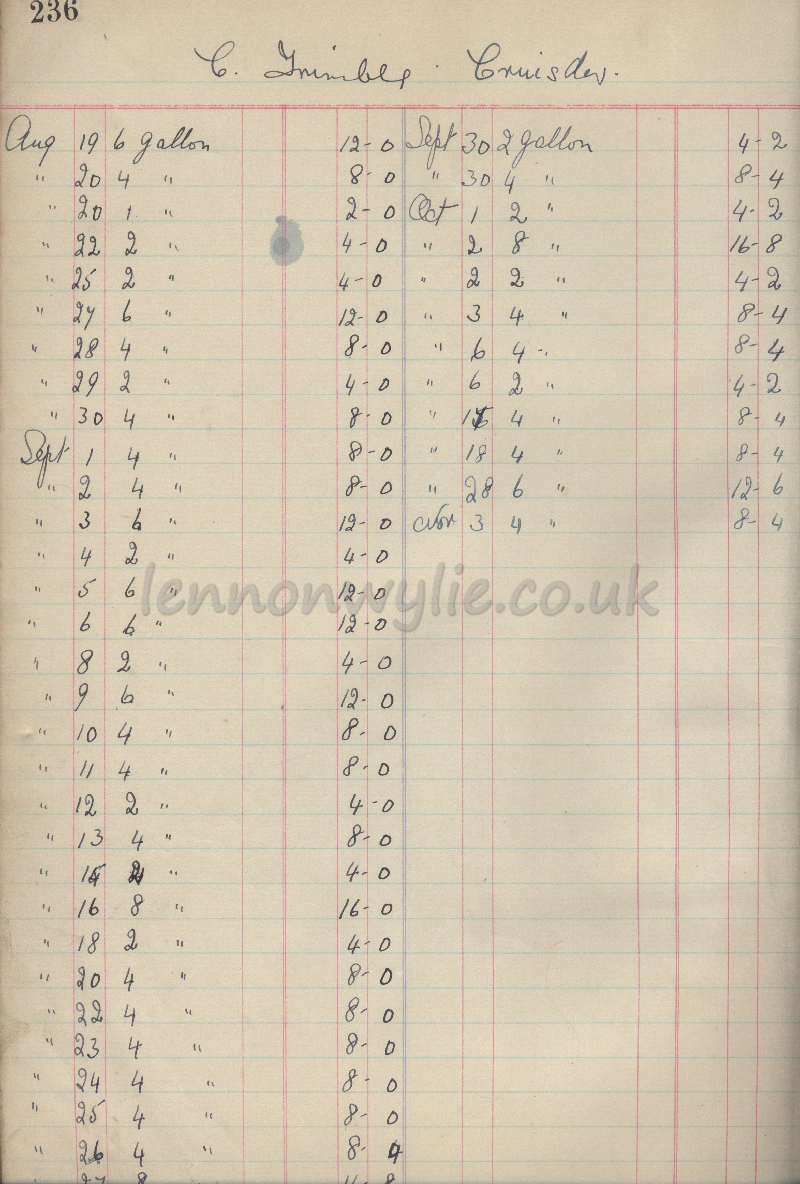 236
C. Trimble Cruisdey.
Aug 19 6 gallon 12-0
" 20 4 " 8-0
" 20 1 " 2-0
" 22 2 " 4-0
" 25 2 " 4-0
" 27 6 " 12-0
" 28 4 " 8-0
" 29 2 " 4-0
" 30 4 " 8-0
Sept 1 4 " 8-0
" 2 4 " 8-0
" 3 6 " 12-0
" 4 2 " 4-0
" 5 6 " 12-0
" 6 6 " 12-0
" 8 2 " 4-0
" 9 6 " 12-0
" 10 4 " 8-0
" 11 4 " 8-0
" 12 2 " 4-0
" 13 4 " 8-0
" 15 2 " 4-0
" 16 8 " 16-0
" 18 2 " 4-0
" 20 4 " 8-0
" 22 4 " 8-0
" 23 4 " 8-0
" 24 4 " 8-0
" 25 4 " 8-0
" 26 4 " 8-4
Sept 30 2 gallon 4-2
" 30 4 " 8-4
Oct 1 2 " 4-2
" 2 8 " 16-8
" 2 2 " 4-2
" 3 4 " 8-4
" 6 4 " 8-4
" 6 2 " 4-2
" 4 " 8-4
" 18 4 " 8-4
" 28 6 " 12-6
Nov 3 4 " 8-4
lennonwylie.co.uk